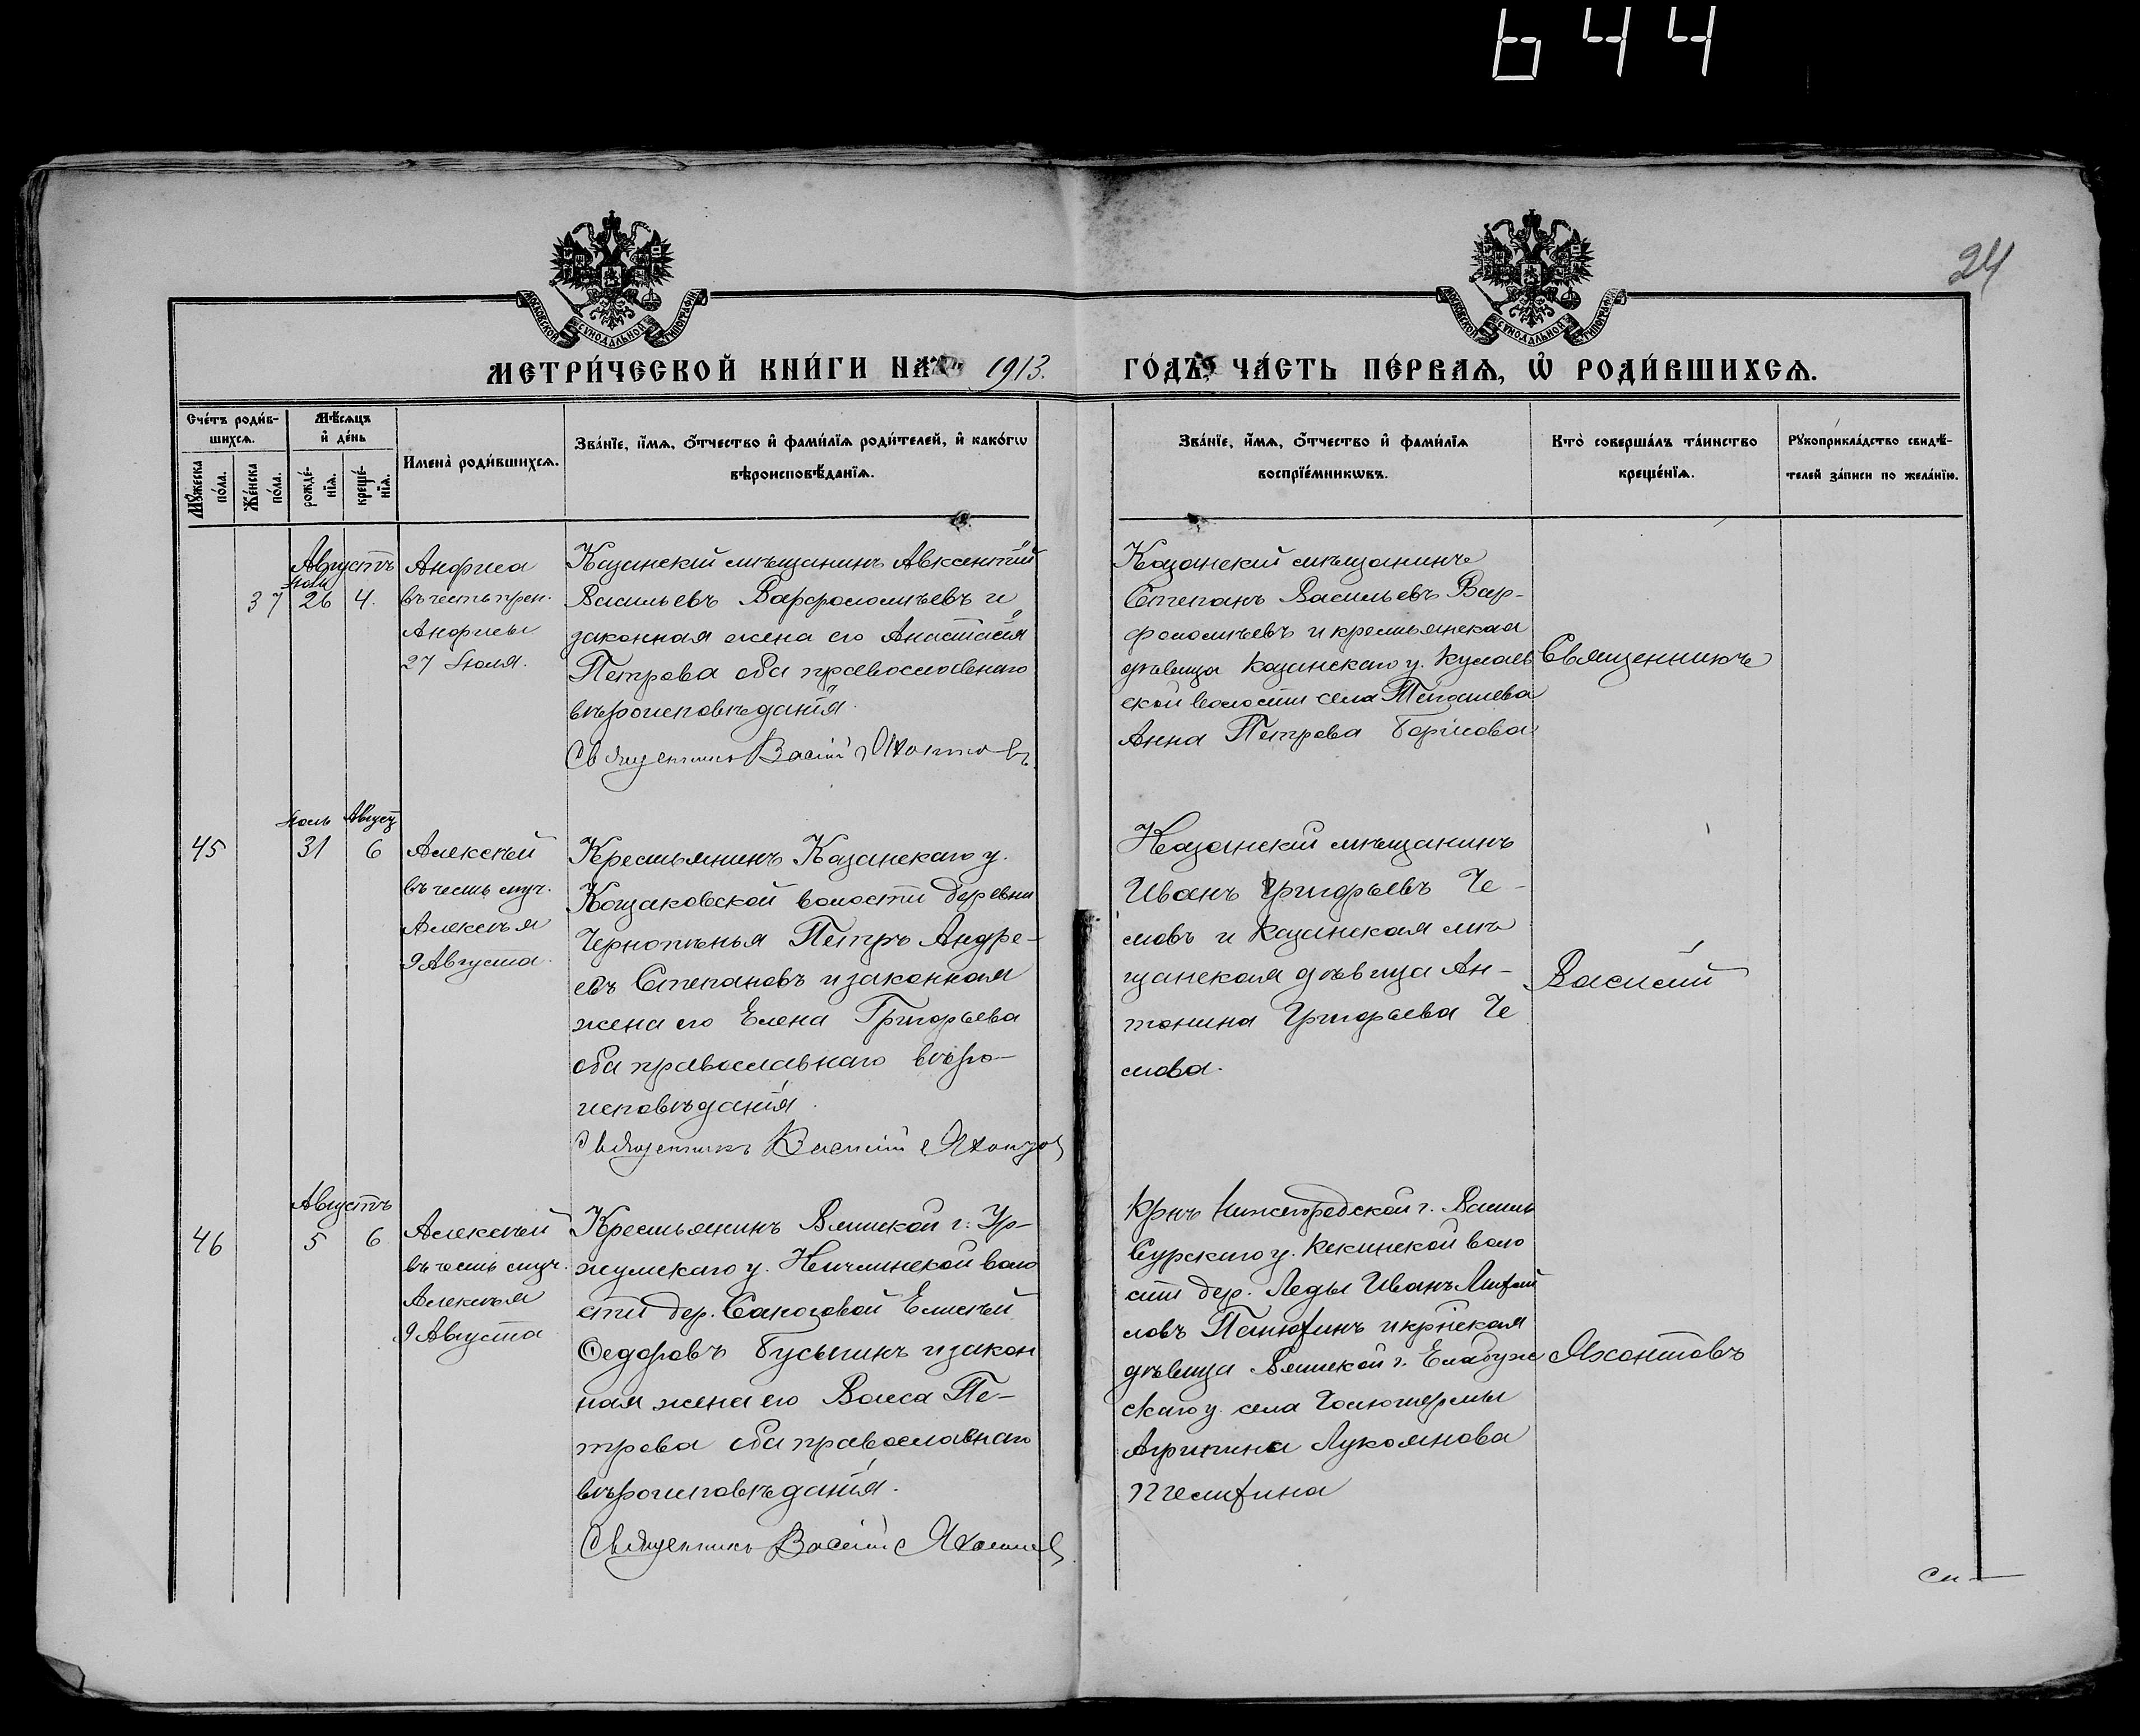 644
24
МОСКОВСКОЙ СУНОДАЛЬНОЙ ТИПОГРАФІИ
МОСКОВСКОЙ СУНОДАЛЬНОЙ ТИПОГРАФІИ
МЕТРИ́ЧЕСКОЙ КНИ́ГИ НА 1913. ГО́ДЪ, ЧА́СТЬ ПЕ́РВАѦ, Ѡ҆ РОДИ́ВШИХСѦ.
Сче́тъ роди́в-
шихсѧ.
Мꙋ́жеска по́ла.
Же́нска по́ла.
Мѣ́сѧцъ
и҆ де́нь
рожде́-
нїѧ.
креще́-
нїѧ.
Имена̀ роди́вшихсѧ.
Зва́нїе, и҆́мѧ, ѻ҆́тчество и҆ фами́лїѧ роди́телей, и҆ како́гѡ
вѣроисповѣ́данїѧ.
Зва́нїе, и҆́мѧ, ѻ҆́тчество и҆ фами́лїѧ
воспрїе́мникѡвъ.
Кто̀ соверша́лъ та́инство
креще́нїѧ.
Рꙋкоприкла́дство свидѣ́-
телей за́писи по жела́нїю.
Августъ
Іюля
37 26 4.
Анфиса
въ честь преп.
Анфисы
27 Іюля.
Казанскій мѣщанинъ Авксентій
Васильевъ Варфоломѣевъ и
законная жена его Анастасія
Петрова оба православнаго
вѣроисповѣданія.
Священникъ Василій Яхонтовъ
Казанскій мѣщанинъ
Степанъ Васильевъ Вар-
фоломѣевъ и крестьянская
дѣвица Казанскаго у. Кулаев
ской волости села
Анна Петрова Борисова
Священникъ
Іюль Август
45 31 6
Алексѣй
въ честь муч.
Алексѣя
9 Августа.
Крестьянинъ Казанскаго у.
Кощаковской волости деревни
Чернопенья Петръ Андре-
евъ Степановъ и законная
жена его Елена Григорьева
оба православнаго вѣро-
исповѣданія.
Священникъ Василій Яхонтов
Казанскій мѣщанинъ
Иванъ Григорьевъ Че-
мовъ и Казанская мѣ
щанская дѣвица Ан-
тонина Григорьева Че
мова.
Василій
Августъ
46 5 6
Алексѣй
въ честь муч.
Алексѣя
9 Августа
Крестьянинъ Вятской г. Ур-
жумскаго у. воло
сти дер. Елисѣй
Ѳедоровъ Бусыгинъ и закон
ная жена его Васса Пе-
трова оба православнаго
вѣроисповѣданія.
Священникъ Василій Яхонтов
Крнъ Нижегородской г. Василь
Сурскаго у. воло
сти дер. Леды Иванъ Михай
ловъ Панюхинъ и крнская
дѣвица Вятской г. Елабуж
скаго у. села
Агрипина Лукоянова
Яхонтовъ